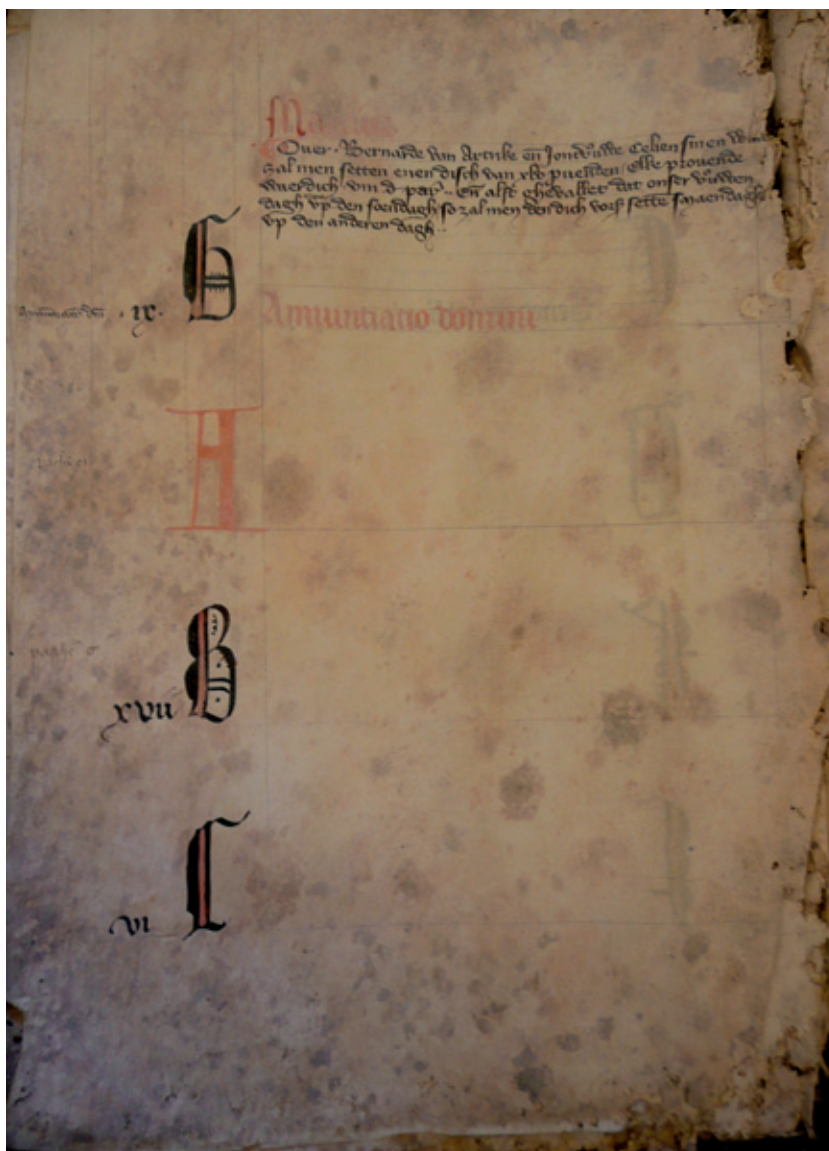 Martius
Over Bernarde van Artrike en̄ Joncvr̄uwe Celien sinen
zal men setten enen disch van xlv puenden Elke provende
weerdich viii d. par.. en̄ alst ghevallet dat onser vr̄uwen
dagh vp̄ den soendagh so zal men den disch vors̄ sette smaendaghs
vp̄ den anderen dagh..
.ix. G
Annuntiatio domini
A
xvii B
vi C